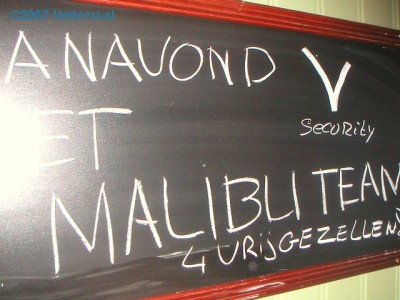 ©2007 Uetdorst.nl
ANAVOND V
Security
ET
MALIBLI TEAM
4 VRIJGEZELLEN